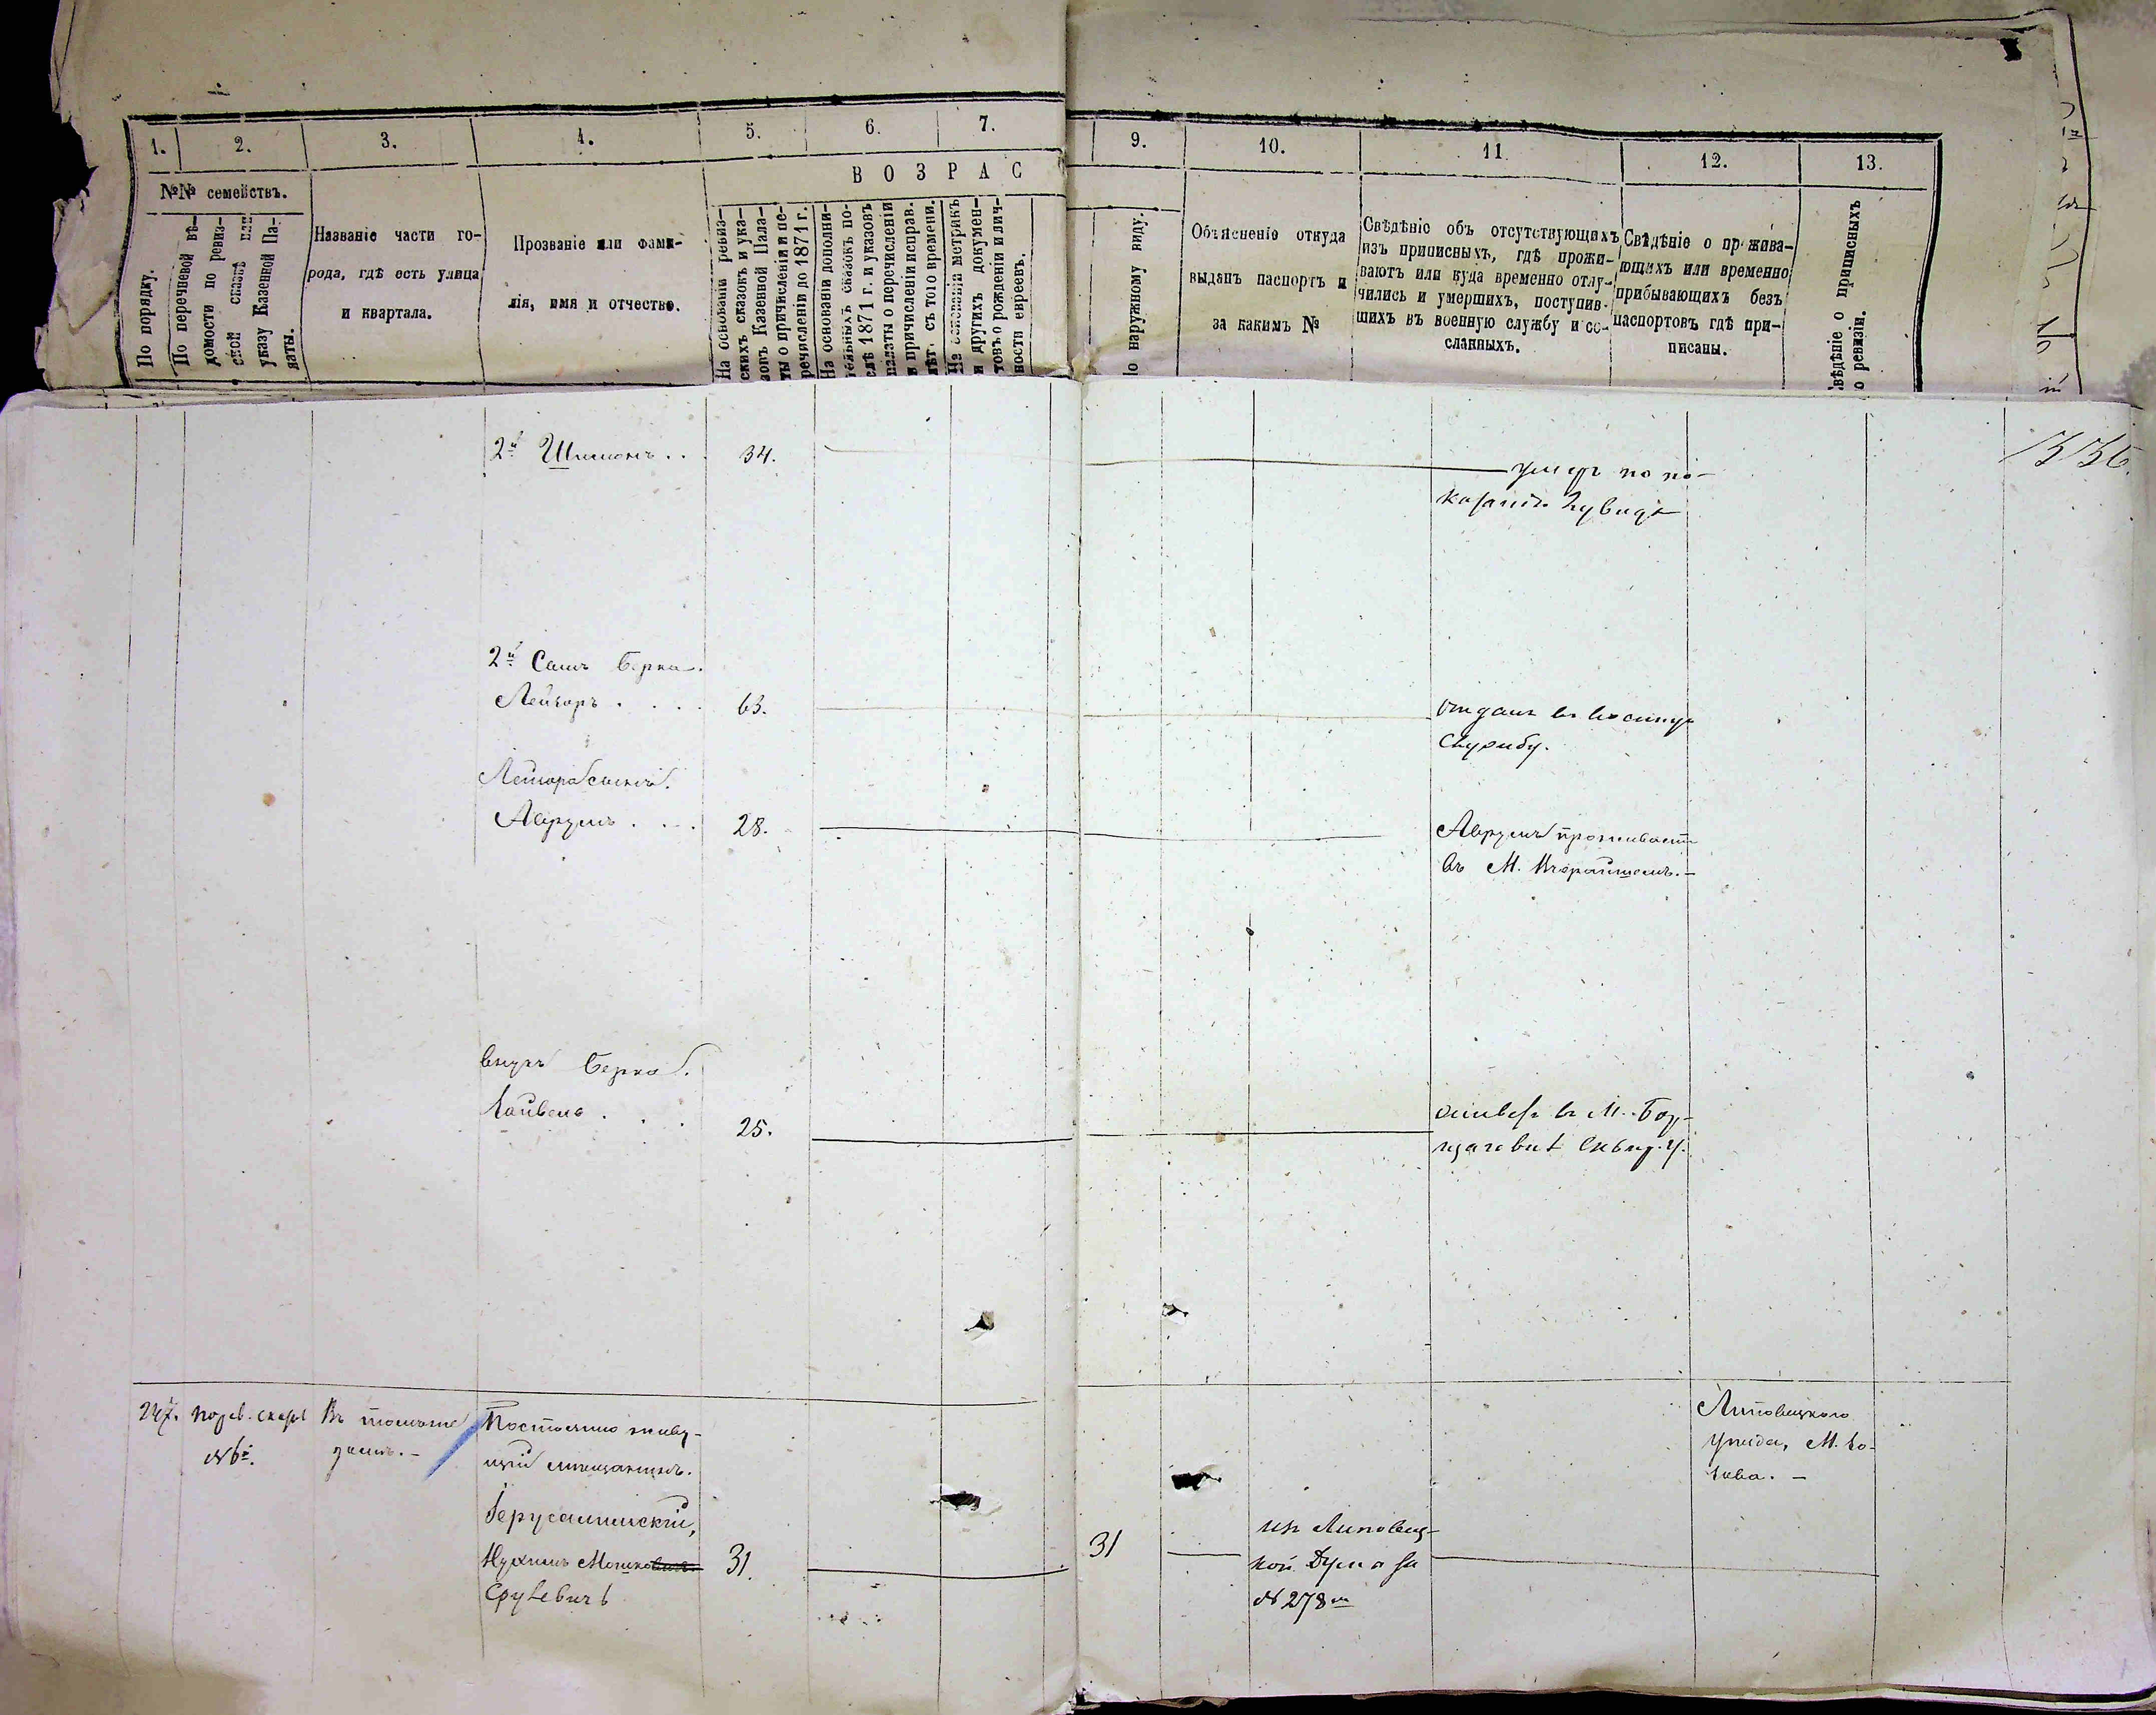 1.
2.
3.
4.
5.
6.
7.
9.
10.
11
12.
13.
№№ семействъ.
ВОЗРАС
По порядку.
По перечневой вѣ-
домости по ревиз-
ской сказкѣ или
указу Казенной Па-
латы.
Названіе части го-
рода, гдѣ есть улица
и квартала.
Прозваніе или фами-
лія, имя и отчество.
На основаніи ревиз-
скихъ сказокъ и ука-
зовъ Казенной Пала-
ты о причисленіи и пе-
речисленіи до 1871 г.
На основаніи дополни-
тельныхъ сказокъ по-
слѣ 1871 г. и указовъ
палаты о перечисленіи
и причисленіи исправ.
лѣт. съ того времени.
На основаніи метрикъ
и другихъ докумен-
товъ о рожденіи и лич-
ности евреевъ.
По наружному виду.
Объясненіе откуда
выданъ паспортъ и
за какимъ №
Свѣдѣніе объ отсутствующихъ
изъ приписныхъ, гдѣ прожи-
ваютъ или куда временно отлу-
чились и умершихъ, поступив-
шихъ въ военную службу и со-
сланныхъ.
Свѣдѣніе о прожива-
ющихъ или временно
прибывающихъ безъ
паспортовъ гдѣ при-
писаны.
Свѣдѣніе о приписныхъ
по ревизіи.
2й Шимонъ . . 34.
умеръ по по-
казанію
2й Сынъ Берка.
Лейзоръ . . . . 63.
отданъ въ военную
службу.
Лейзора сынъ.
Аврумъ . . . 28.
Аврумъ проживаетъ
въ М.
внукъ Берка.
Лейвель . . . 25.
въ М. Бор-
щаговкѣ Сквир. у.
247. по рев. сказкѣ
№ 6й.
Въ томъ же
домѣ. -
Постоянно живу-
щій мѣщанинъ.
Іерусалимскій,
Нухимъ Мошковичъ 31.
Срулевичъ
31
изъ Липовец-
кой Думы за
№ 278м
Липовецкаго
Уѣзда, М.